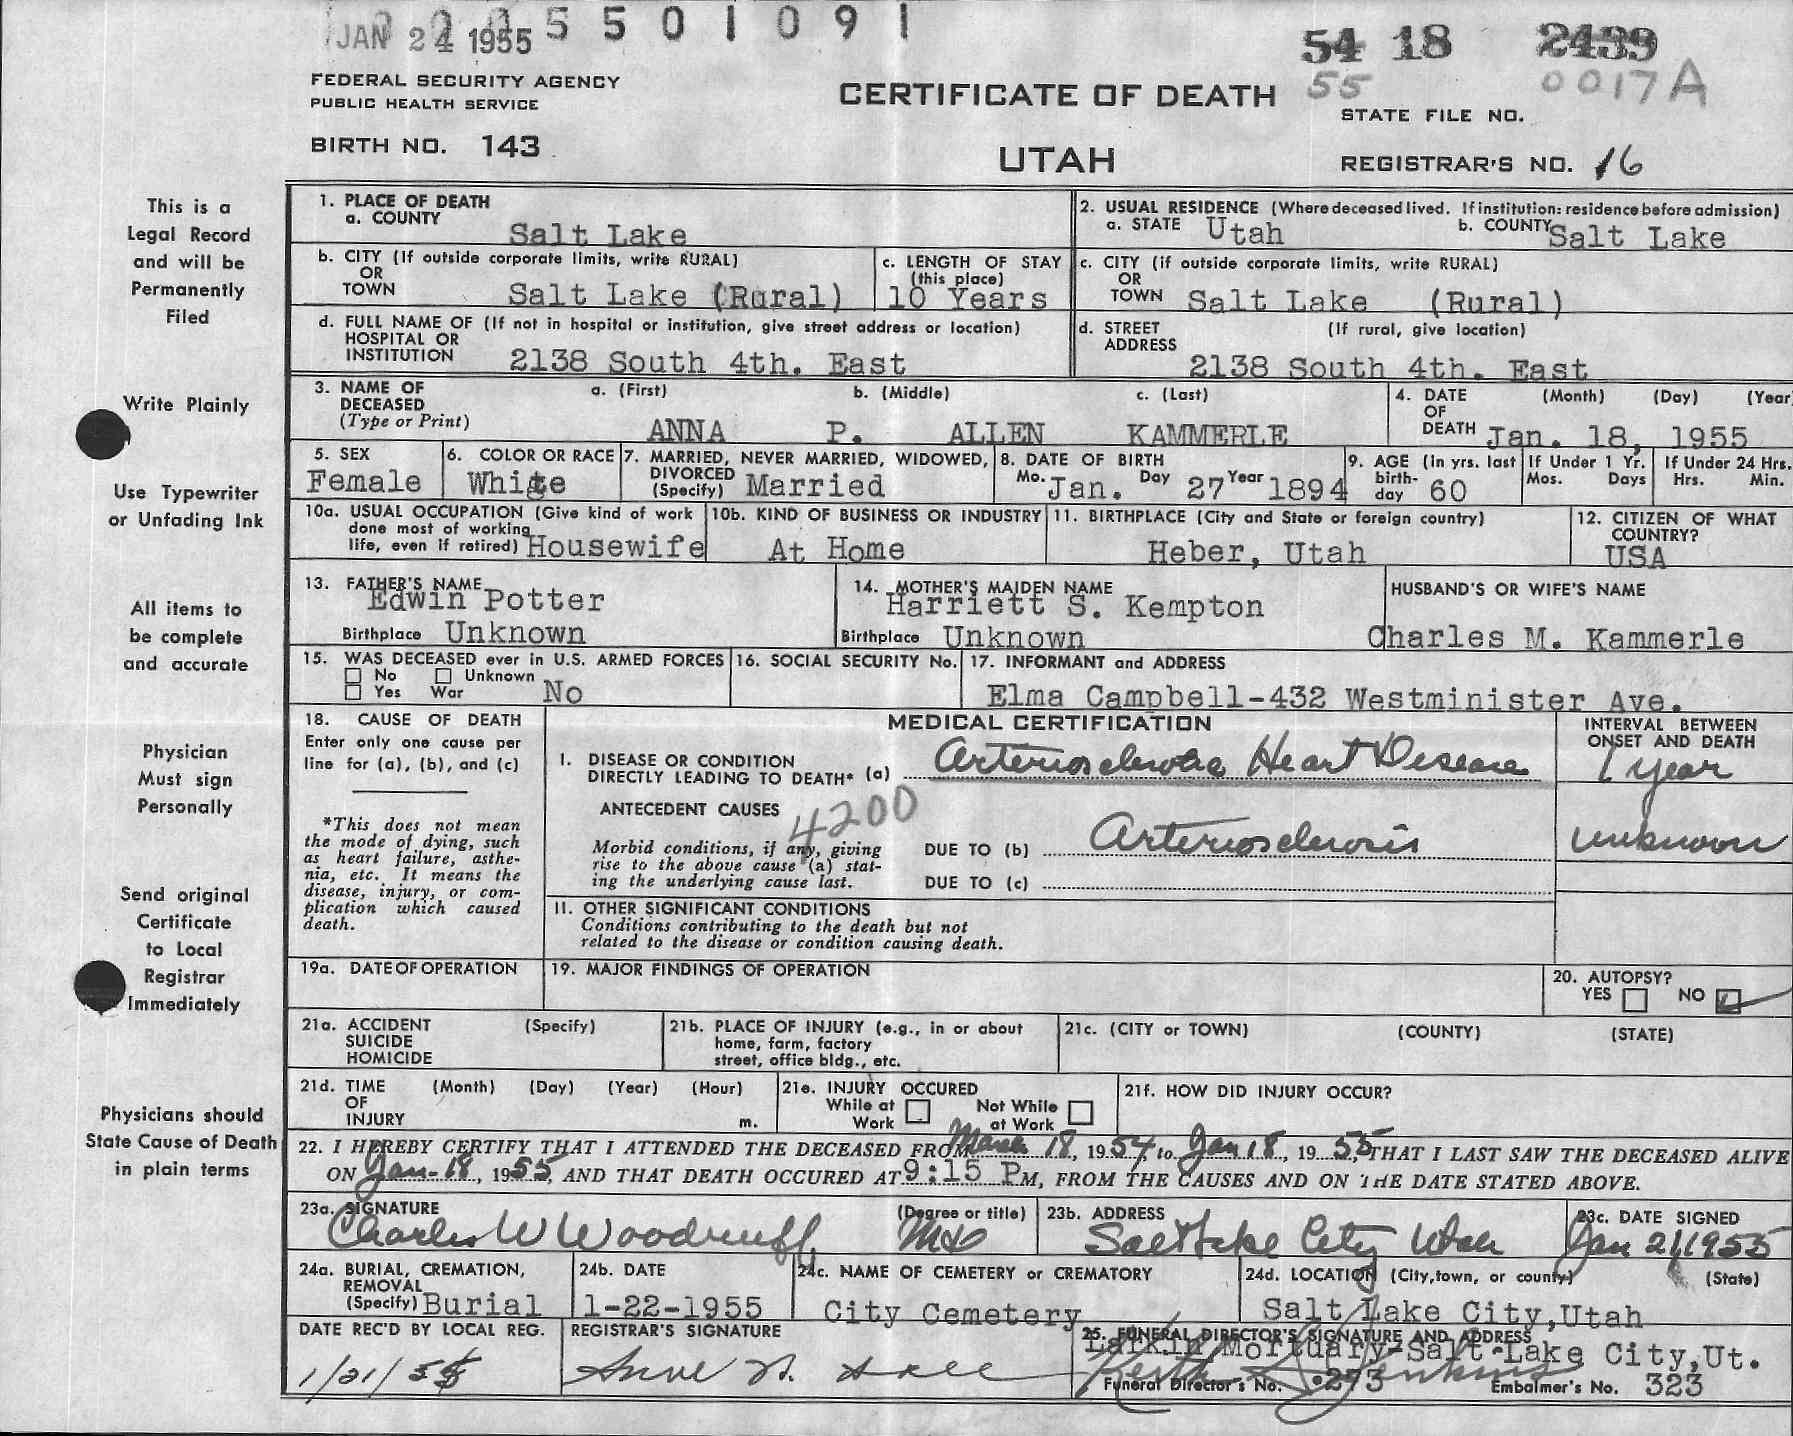 JAN 24 1955 5 5 0 1 0 9 1
54 18 2439
55 0017A
FEDERAL SECURITY AGENCY
PUBLIC HEALTH SERVICE
CERTIFICATE OF DEATH
STATE FILE NO.
BIRTH NO. 143
UTAH
REGISTRAR'S NO. 16
This is a
Legal Record
and will be
Permanently
Filed
Write Plainly
Use Typewriter
or Unfading Ink
All items to
be complete
and accurate
Physician
Must sign
Personally
Send original
Certificate
to Local
Registrar
Immediately
Physicians should
State Cause of Death
in plain terms
1. PLACE OF DEATH
a. COUNTY
Salt Lake
2. USUAL RESIDENCE (Where deceased lived. If institution: residence before admission)
a. STATE Utah b. COUNTY Salt Lake
b. CITY (If outside corporate limits, write RURAL)
OR
TOWN Salt Lake (Rural)
c. LENGTH OF STAY
(this place)
10 Years
c. CITY (if outside corporate limits, write RURAL)
OR
TOWN Salt Lake (Rural)
d. FULL NAME OF (If not in hospital or institution, give street address or location)
HOSPITAL OR
INSTITUTION 2138 South 4th. East
d. STREET (If rural, give location)
ADDRESS
2138 South 4th. East
3. NAME OF a. (First) b. (Middle) c. (Last)
DECEASED
(Type or Print) ANNA P. ALLEN KAMMERLE
4. DATE (Month) (Day) (Year
OF
DEATH Jan. 18, 1955
5. SEX
Female
6. COLOR OR RACE
White
7. MARRIED, NEVER MARRIED, WIDOWED,
DIVORCED
(Specify) Married
8. DATE OF BIRTH
Mo. Jan. Day 27 Year 1894
9. AGE (In yrs. last
birth-
day 60
If Under 1 Yr.
Mos. Days
If Under 24 Hrs.
Hrs. Min.
10a. USUAL OCCUPATION (Give kind of work
done most of working
life, even if retired) Housewife
10b. KIND OF BUSINESS OR INDUSTRY
At Home
11. BIRTHPLACE (City and State or foreign country)
Heber, Utah
12. CITIZEN OF WHAT
COUNTRY?
USA
13. FATHER'S NAME
Edwin Potter
Birthplace Unknown
14. MOTHER'S MAIDEN NAME
Harriett S. Kempton
Birthplace Unknown
HUSBAND'S OR WIFE'S NAME
Charles M. Kammerle
15. WAS DECEASED ever in U.S. ARMED FORCES
No Unknown
Yes War No
16. SOCIAL SECURITY No.
17. INFORMANT and ADDRESS
Elma Campbell-432 Westminister Ave.
18. CAUSE OF DEATH
Enter only one cause per
line for (a), (b), and (c)
*This does not mean
the mode of dying, such
as heart failure, asthe-
nia, etc. It means the
disease, injury, or com-
plication which caused
death.
MEDICAL CERTIFICATION
INTERVAL BETWEEN
ONSET AND DEATH
I. DISEASE OR CONDITION
DIRECTLY LEADING TO DEATH* (a) Arteriosclerotic Heart Disease 1 year
ANTECEDENT CAUSES 4200
Morbid conditions, if any, giving
rise to the above cause (a) stat-
ing the underlying cause last.
DUE TO (b) Arteriosclerosis unknown
DUE TO (c)
II. OTHER SIGNIFICANT CONDITIONS
Conditions contributing to the death but not
related to the disease or condition causing death.
19a. DATE OF OPERATION
19. MAJOR FINDINGS OF OPERATION
20. AUTOPSY?
YES NO
21a. ACCIDENT (Specify)
SUICIDE
HOMICIDE
21b. PLACE OF INJURY (e.g., in or about
home, farm, factory
street, office bldg., etc.
21c. (CITY or TOWN) (COUNTY) (STATE)
21d. TIME (Month) (Day) (Year) (Hour)
OF
INJURY m.
21e. INJURY OCCURED
While at Not While
Work at Work
21f. HOW DID INJURY OCCUR?
22. I HEREBY CERTIFY THAT I ATTENDED THE DECEASED FROM March 18, 1954, to Jan 18, 1955, THAT I LAST SAW THE DECEASED ALIVE
ON Jan-18, 1955, AND THAT DEATH OCCURED AT 9:15 PM, FROM THE CAUSES AND ON THE DATE STATED ABOVE.
23a. SIGNATURE (Degree or title)
Charles W Woodruff MD
23b. ADDRESS
Salt Lake City Utah
23c. DATE SIGNED
Jan 21, 1955
24a. BURIAL, CREMATION,
REMOVAL
(Specify) Burial
24b. DATE
1-22-1955
24c. NAME OF CEMETERY or CREMATORY
City Cemetery
24d. LOCATION (City, town, or county) (State)
Salt Lake City, Utah
DATE REC'D BY LOCAL REG.
1/21/55
REGISTRAR'S SIGNATURE
25. FUNERAL DIRECTOR'S SIGNATURE AND ADDRESS
Larkin Mortuary-Salt Lake City, Ut.
Funeral Director's No. 273 Embalmer's No. 323